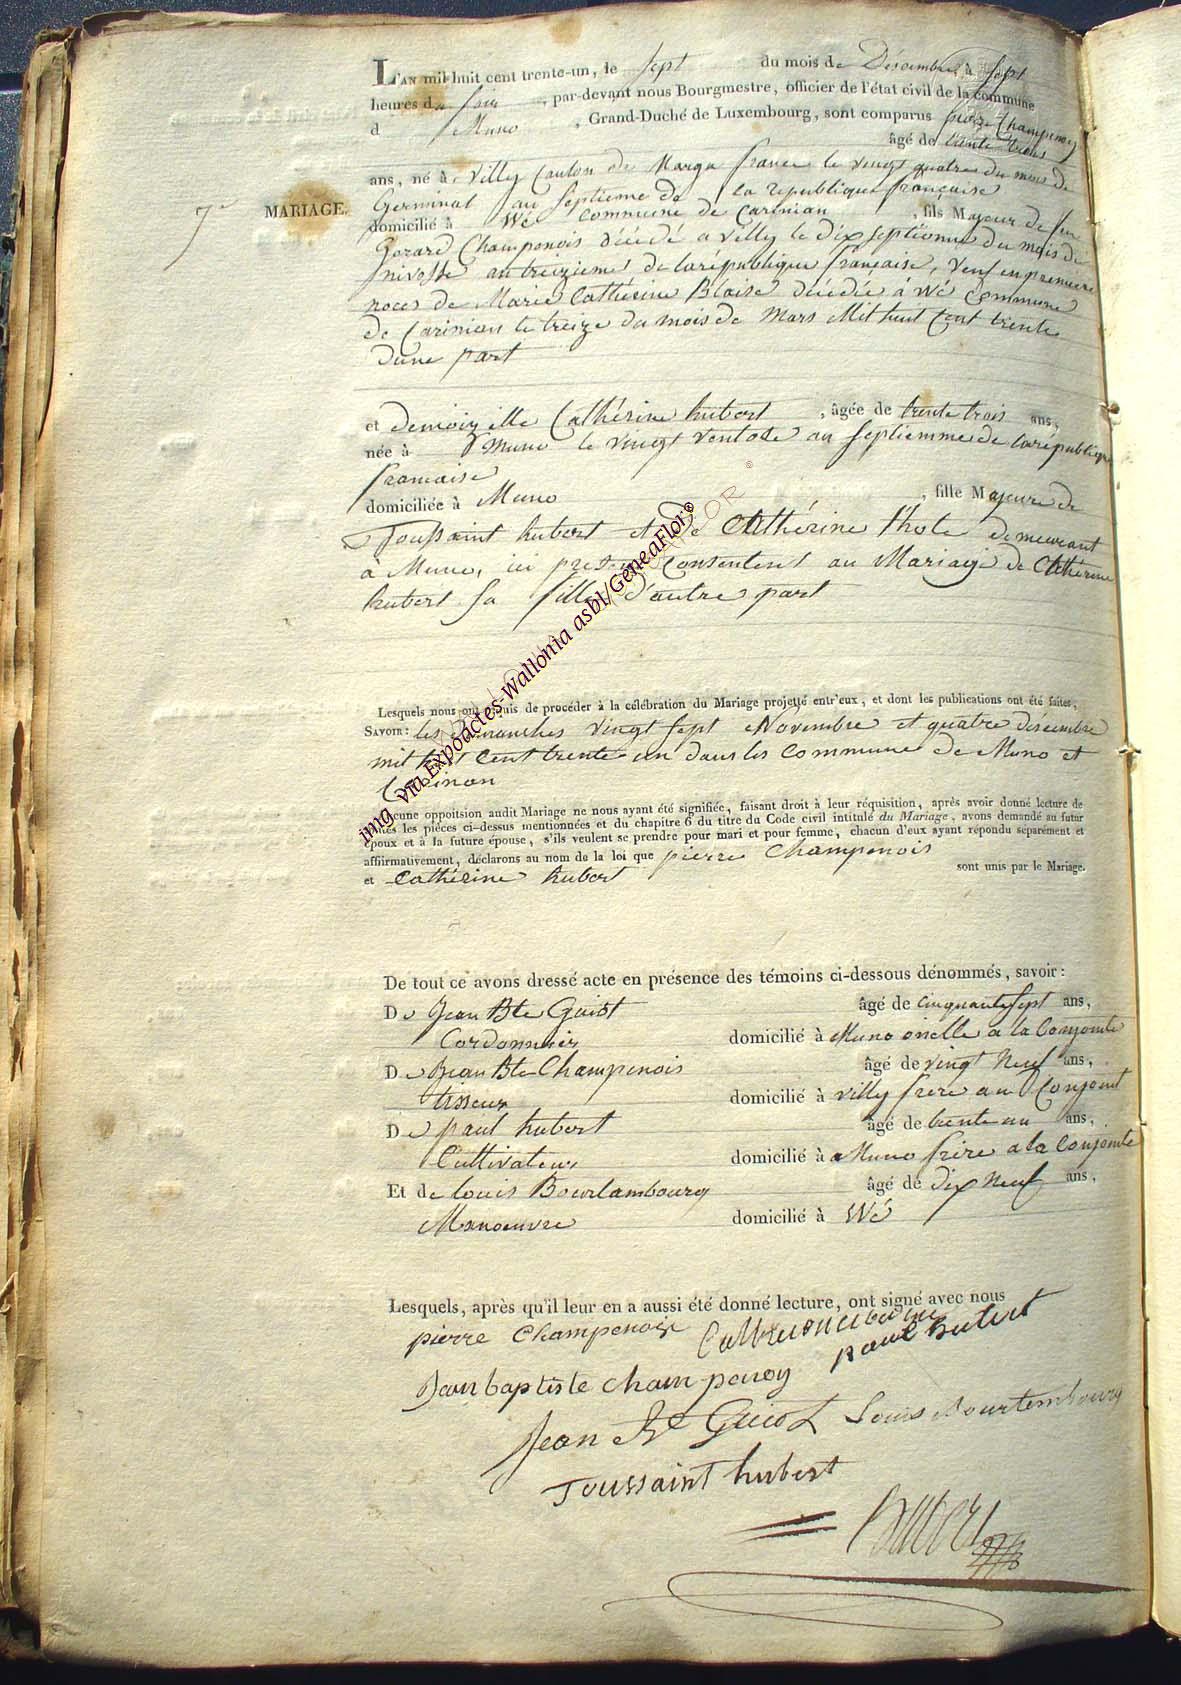 L'AN mil huit cent trente-un, le sept du mois de Désembre à sept
heures du soir, par-devant nous Bourgmestre, officier de l'état civil de la commune
d Muno, Grand-Duché de Luxembourg, sont comparus pierre Champenois
âgé de trente trois
ans, né à Villy Canton de Margu france le vingt quatre du mois de
Germinal au septieme de la republique française
7e MARIAGE.
domicilié à Wé commune de Carinian, fils Majeur de feu
Gerard Champenois décédé a Villy le dix septieme du mois de
nivosse au treizieme de la république française, veuf en premiere
noces de Marie Cathérine Blaise décédée à Wé Commune
de Carinian le treize du mois de Mars Mil huit Cent trente
dune part
et demoizelle Cathérine hubert, âgée de trente trois ans,
née à Muno le vingt ventose au septiemme de la republique
francaise
domiciliée à Muno, fille Majeure de
Toussaint hubert et de Cathérine Thote demeurant
à Muno, ici present consentent au Mariage de Cathérine
hubert sa fille d'autre part
Lesquels nous ont requis de procéder à la célébration du Mariage projetté entr'eux, et dont les publications ont été faites,
SAVOIR: les dimanches vingt sept Novembre et quatre désembre
mil huit cent trente un dans les commune de Muno et
Carinan
Aucune oppoitsion audit Mariage ne nous ayant été signifiée, faisant droit à leur réquisition, après avoir donné lecture de
toutes les pièces ci-dessus mentionnées et du chapitre 6 du titre du Code civil intitulé du Mariage, avons demandé au futur
époux et à la future épouse, s'ils veulent se prendre pour mari et pour femme, chacun d'eux ayant répondu séparément et
affiirmativement, déclarons au nom de la loi que pierre Champenois
et Cathérine hubert sont unis par le Mariage.
De tout ce avons dressé acte en présence des témoins ci-dessous dénommés, savoir:
De Jean Bte Guiot âgé de cinquante sept ans,
Cordonnier domicilié à Muno onclle a la Conjointe
De Jean Bte Champenois âgé de vingt Neuf ans,
tisseur domicilié à Villy frere au Conjoint
De paul hubert âgé de trente un ans,
Cultivateur domicilié à Muno frère a la Conjointe
Et de louis Bourlambourg âgé de dix Neuf ans,
Manoeuvre domicilié à Wé
Lesquels, après qu'il leur en a aussi été donné lecture, ont signé avec nous
pierre Champenoix
paul hubert
Jean baptiste champenoy
Jean Bte Guiot Louis Bourtembourg
Toussaint hubert
img via Expoactes-Wallonia asbl/GénéaFlor©